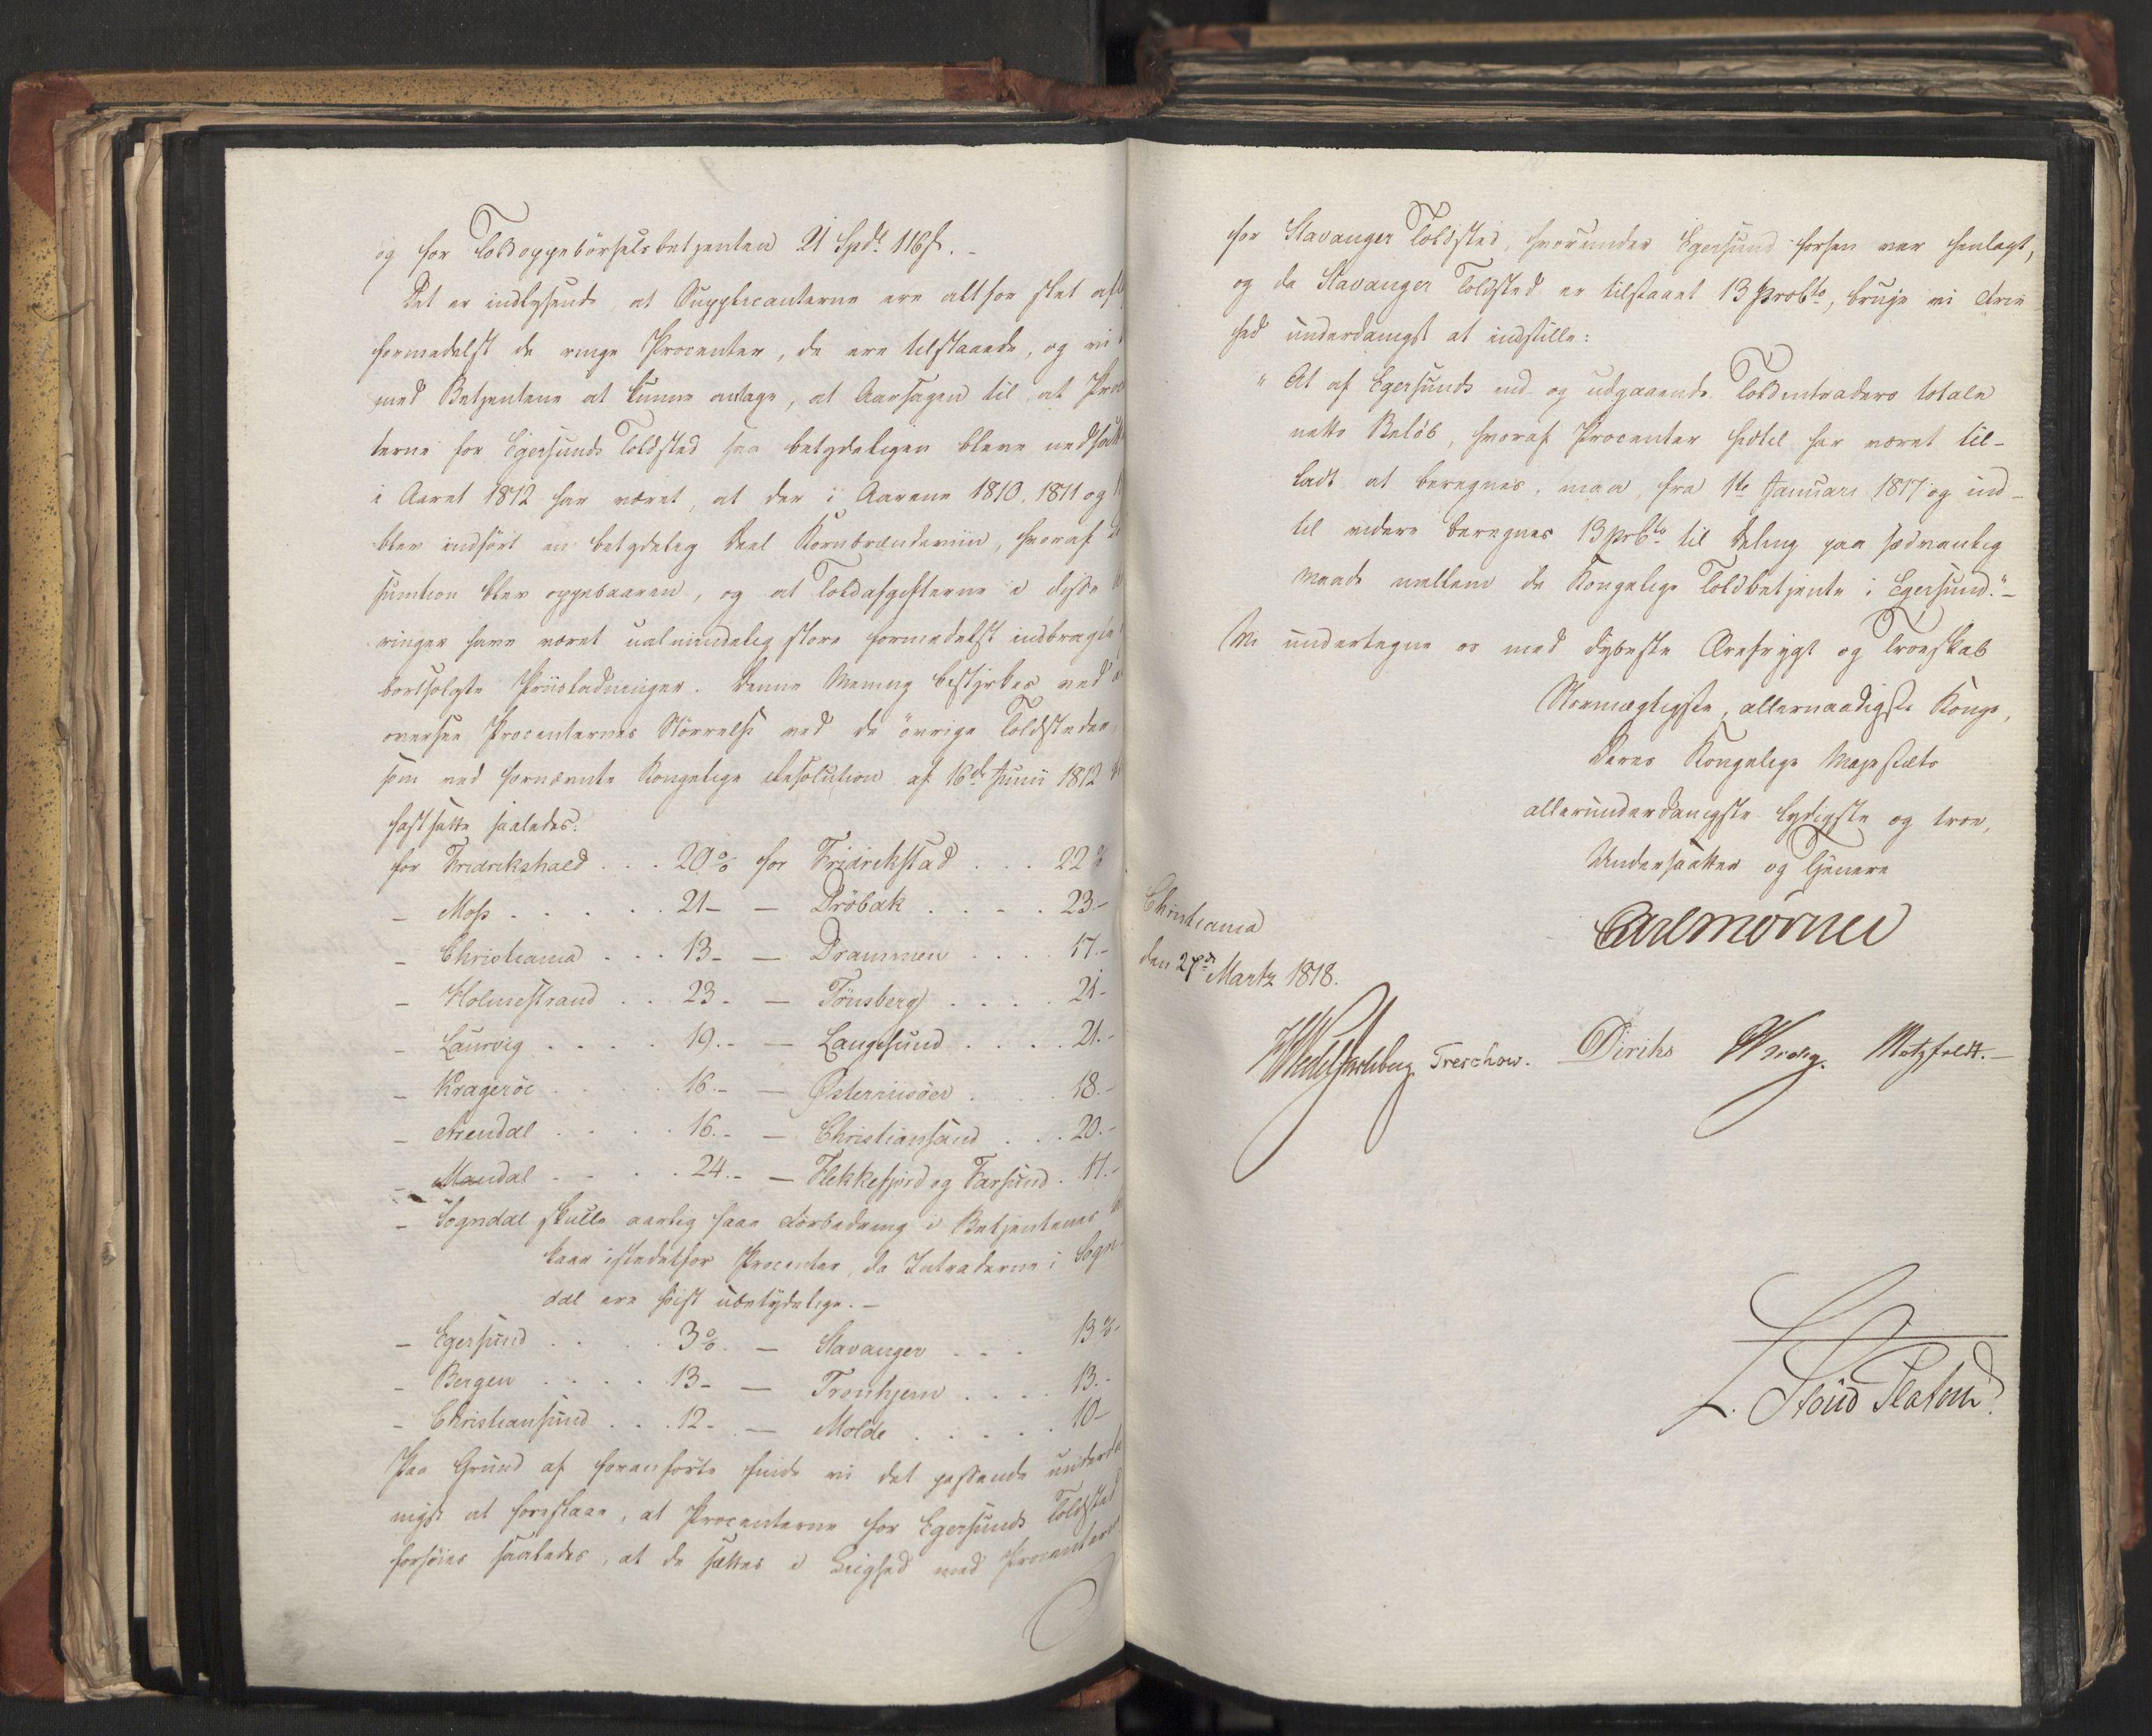 og for Toldoppebörselsbetjenten 21 Spd. 116 s. -
Det er indlysende at Supplicanterne ere altfor slet
formedelst de ringe Procenter, de ere tilstaaede, og vi
med Betjentene at kunne antage, at Aarsagen til at
terne for Egersunds Toldsted saa betydeligen bleve nedsatte
i Aaret 1812 har været, at der i Aarene 1810, 1811 og
blev indført en betydelig Deel Kornbrændeviin, hvoraf
sumtion blev oppebaaren, og at Toldafgifterne i disse
ringer have været ualmindelig store formedelst indbragte
bortsolgte Priisladninger. Denne Mening bestyrkes ved
oversee Procenternes Størrelse ved de övrige Toldsteder,
som ved fornævnte Kongelige Resolution af 16de Junii 1812
fastsatte saaledes:
for Fredrikshald . . . 20 % for Fridrikstad . . . 22 %
- Moss . . . . . 21 - — Dröbak . . . . 23.-
- Christiania . . . 13 - — Drammen . . . . 17.-
- Holmestrand . . 23 - — Tönsberg . . . . 21 -
- Laurvig . . . . 19.- — Langesund . . . . 21.-
- Kragerøe . . . . 16.- — Østerriisöer . . . . 18.-
- Arendal . . . . 16.- — Christiansand . . . 20.-
- Mandal . . . . 24.- — Flekkefjord og Farsund . 17.-
- Sogndal skulle aarlig faae Forbedring i Betjentenes
kaar istedetfor Procenter, da Intraderne i Sogn-
dal ere høist ubetydelige. -
- Egersund . . . . 3 %. — Stavanger . . . 13 %-
- Bergen . . . . 13 - — Tronhjem . . . . 13.-
- Christiansund . . . 12 - — Molde . . . . . 10 -
Paa Grund af foranførte finde vi det passende underda
nigst at foreslaae, at Procenterne for Egersunds Toldsted
forhøies saaledes, at de sættes i Liighed med Procenterne
for Stavanger Toldsted, hvorunder Egersund forhen var henlagt,
og da Stavanger Toldsted er tilstaaet 13 Procto, bruge vi Frie
hed underdanigst at indstille:
" At af Egersunds ind- og udgaaende Toldintraders totale
netto Beløb, hvoraf Procenter hidtil har været til-
ladt at beregnes, maa, fra 1te Januari 1817 og ind-
til videre beregnes 13 prCto til Deling paa sædvanlig
Maade mellem de Kongelige Toldbetjente i Egersund." -
Vi undertegne os med dybeste Ærefrygt og Troeskab
Stormægtigste, allernaadigste Konge,
Deres Kongelige Majestæts
allerunderdanigste lydigste og troe,
Undersaatter og Tjenere
Carl Mörner
Christiania
den 27de Martz 1818.
HWedel Jarlsberg Treschow. Diriks Krieg. Motzfeldt. -
L. Stoud Platou